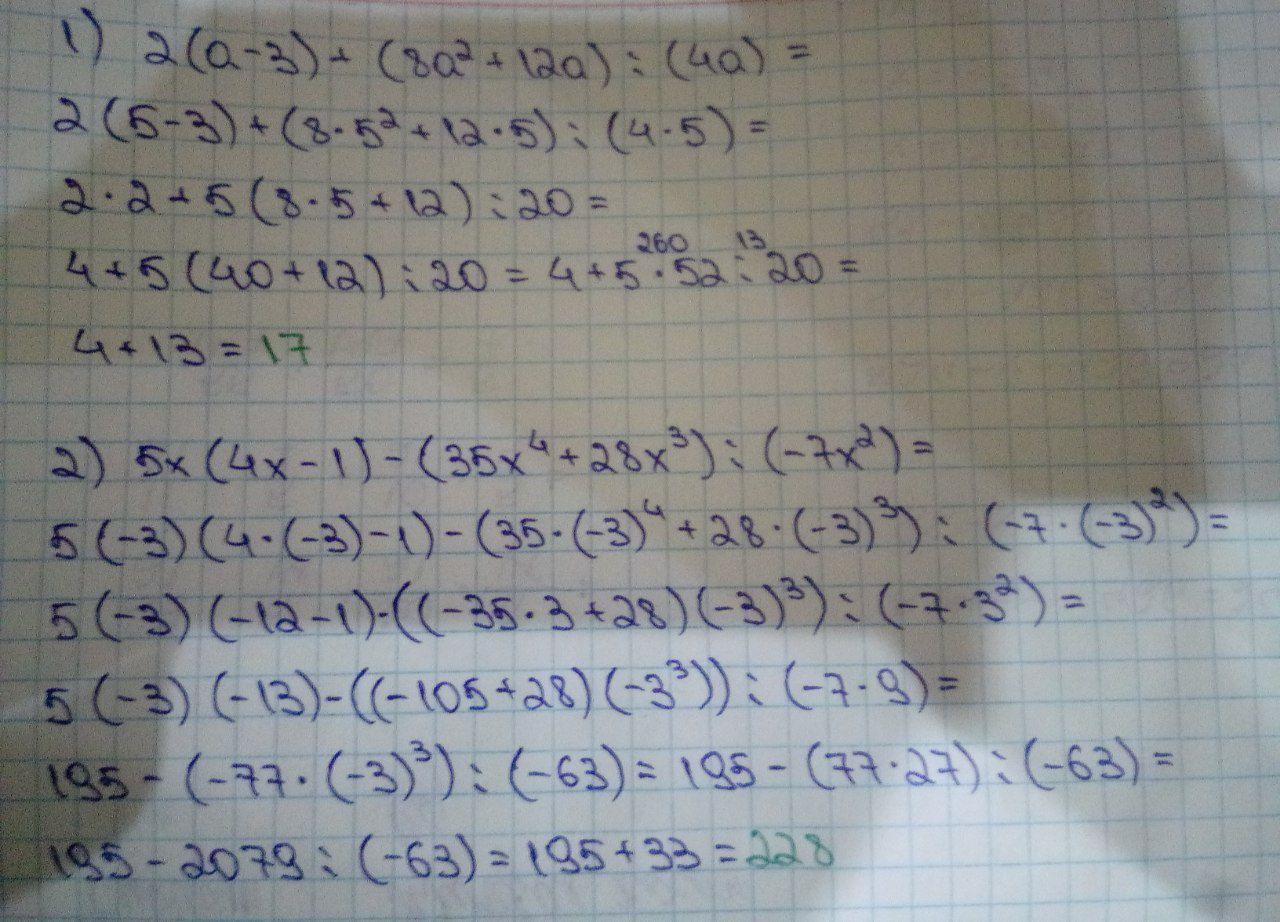 1) 2(a-3)+(8a²+12a):(4a)=
2(5-3)+(8·5²+12·5):(4·5)=
2·2+5(8·5+12):20=
260 13
4+5(40+12):20=4+5·52:20=
4+13=17
2) 5x(4x-1)-(35x⁴+28x³):(-7x²)=
5(-3)(4·(-3)-1)-(35·(-3)⁴+28·(-3)³):(-7·(-3)²)=
5(-3)(-12-1)-((-35·3+28)(-3)³):(-7·3²)=
5(-3)(-13)-((-105+28)(-3³)):(-7·9)=
195-(-77·(-3)³):(-63)=195-(77·27):(-63)=
195-2079:(-63)=195+33=228